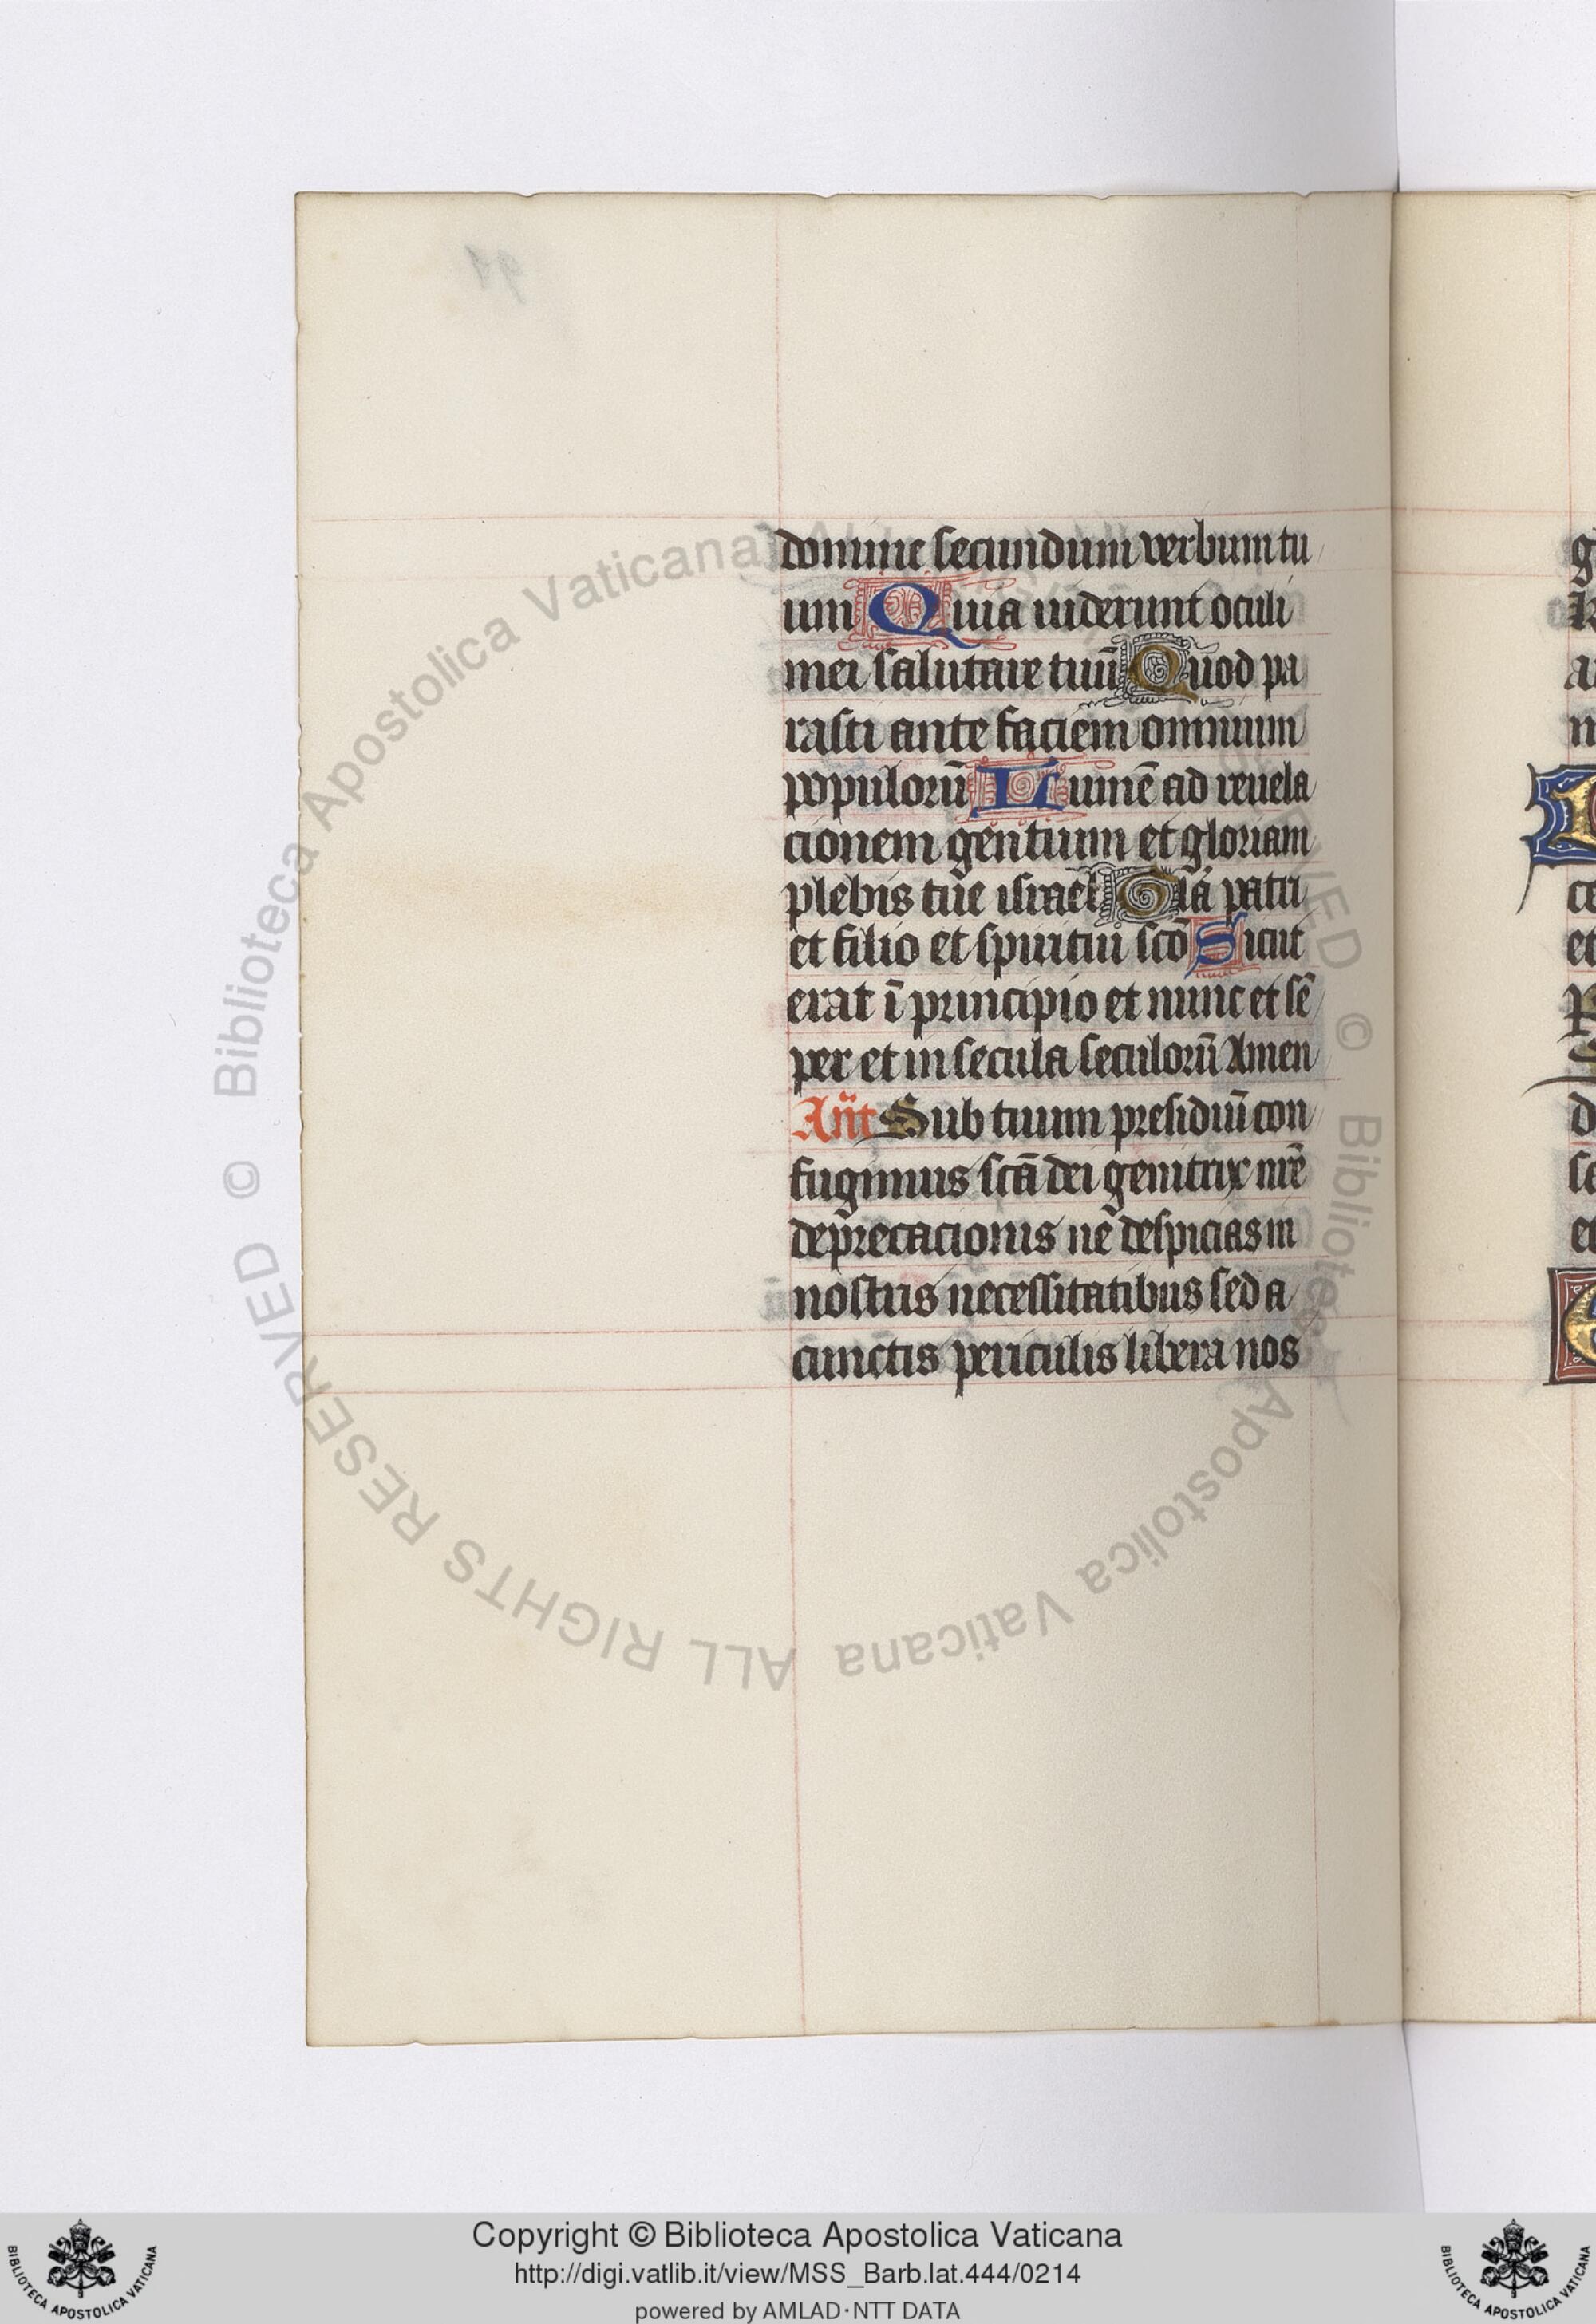 domine secundum verbum tu
um Quia uiderunt oculi
mei salutare tuū Quod pa
rasti ante faciem omnium
populorū Lumē ad reuela
cionem gentium et gloriam
plebis tue israel Gla patri
et filio et spiritui sco Sicut
erat ī principio et nunc et sē
per et in secula seculorū Amen
Añt Sub tuum presidiū con
fugimus sctā dei genitrix nrē
deprecacionis ne despicias in
nostris necessitatibus sed a
cunctis periculis libera nos
91
© Biblioteca Apostolica Vaticana ALL RIGHTS RESERVED © Biblioteca Apostolica Vaticana ALL RIGHTS RESERVED
Copyright © Biblioteca Apostolica Vaticana
http://digi.vatlib.it/view/MSS_Barb.lat.444/0214
powered by AMLAD·NTT DATA
BIBLIOTECA APOSTOLICA VATICANA
BIBLIOTECA APOSTOLICA VATICANA